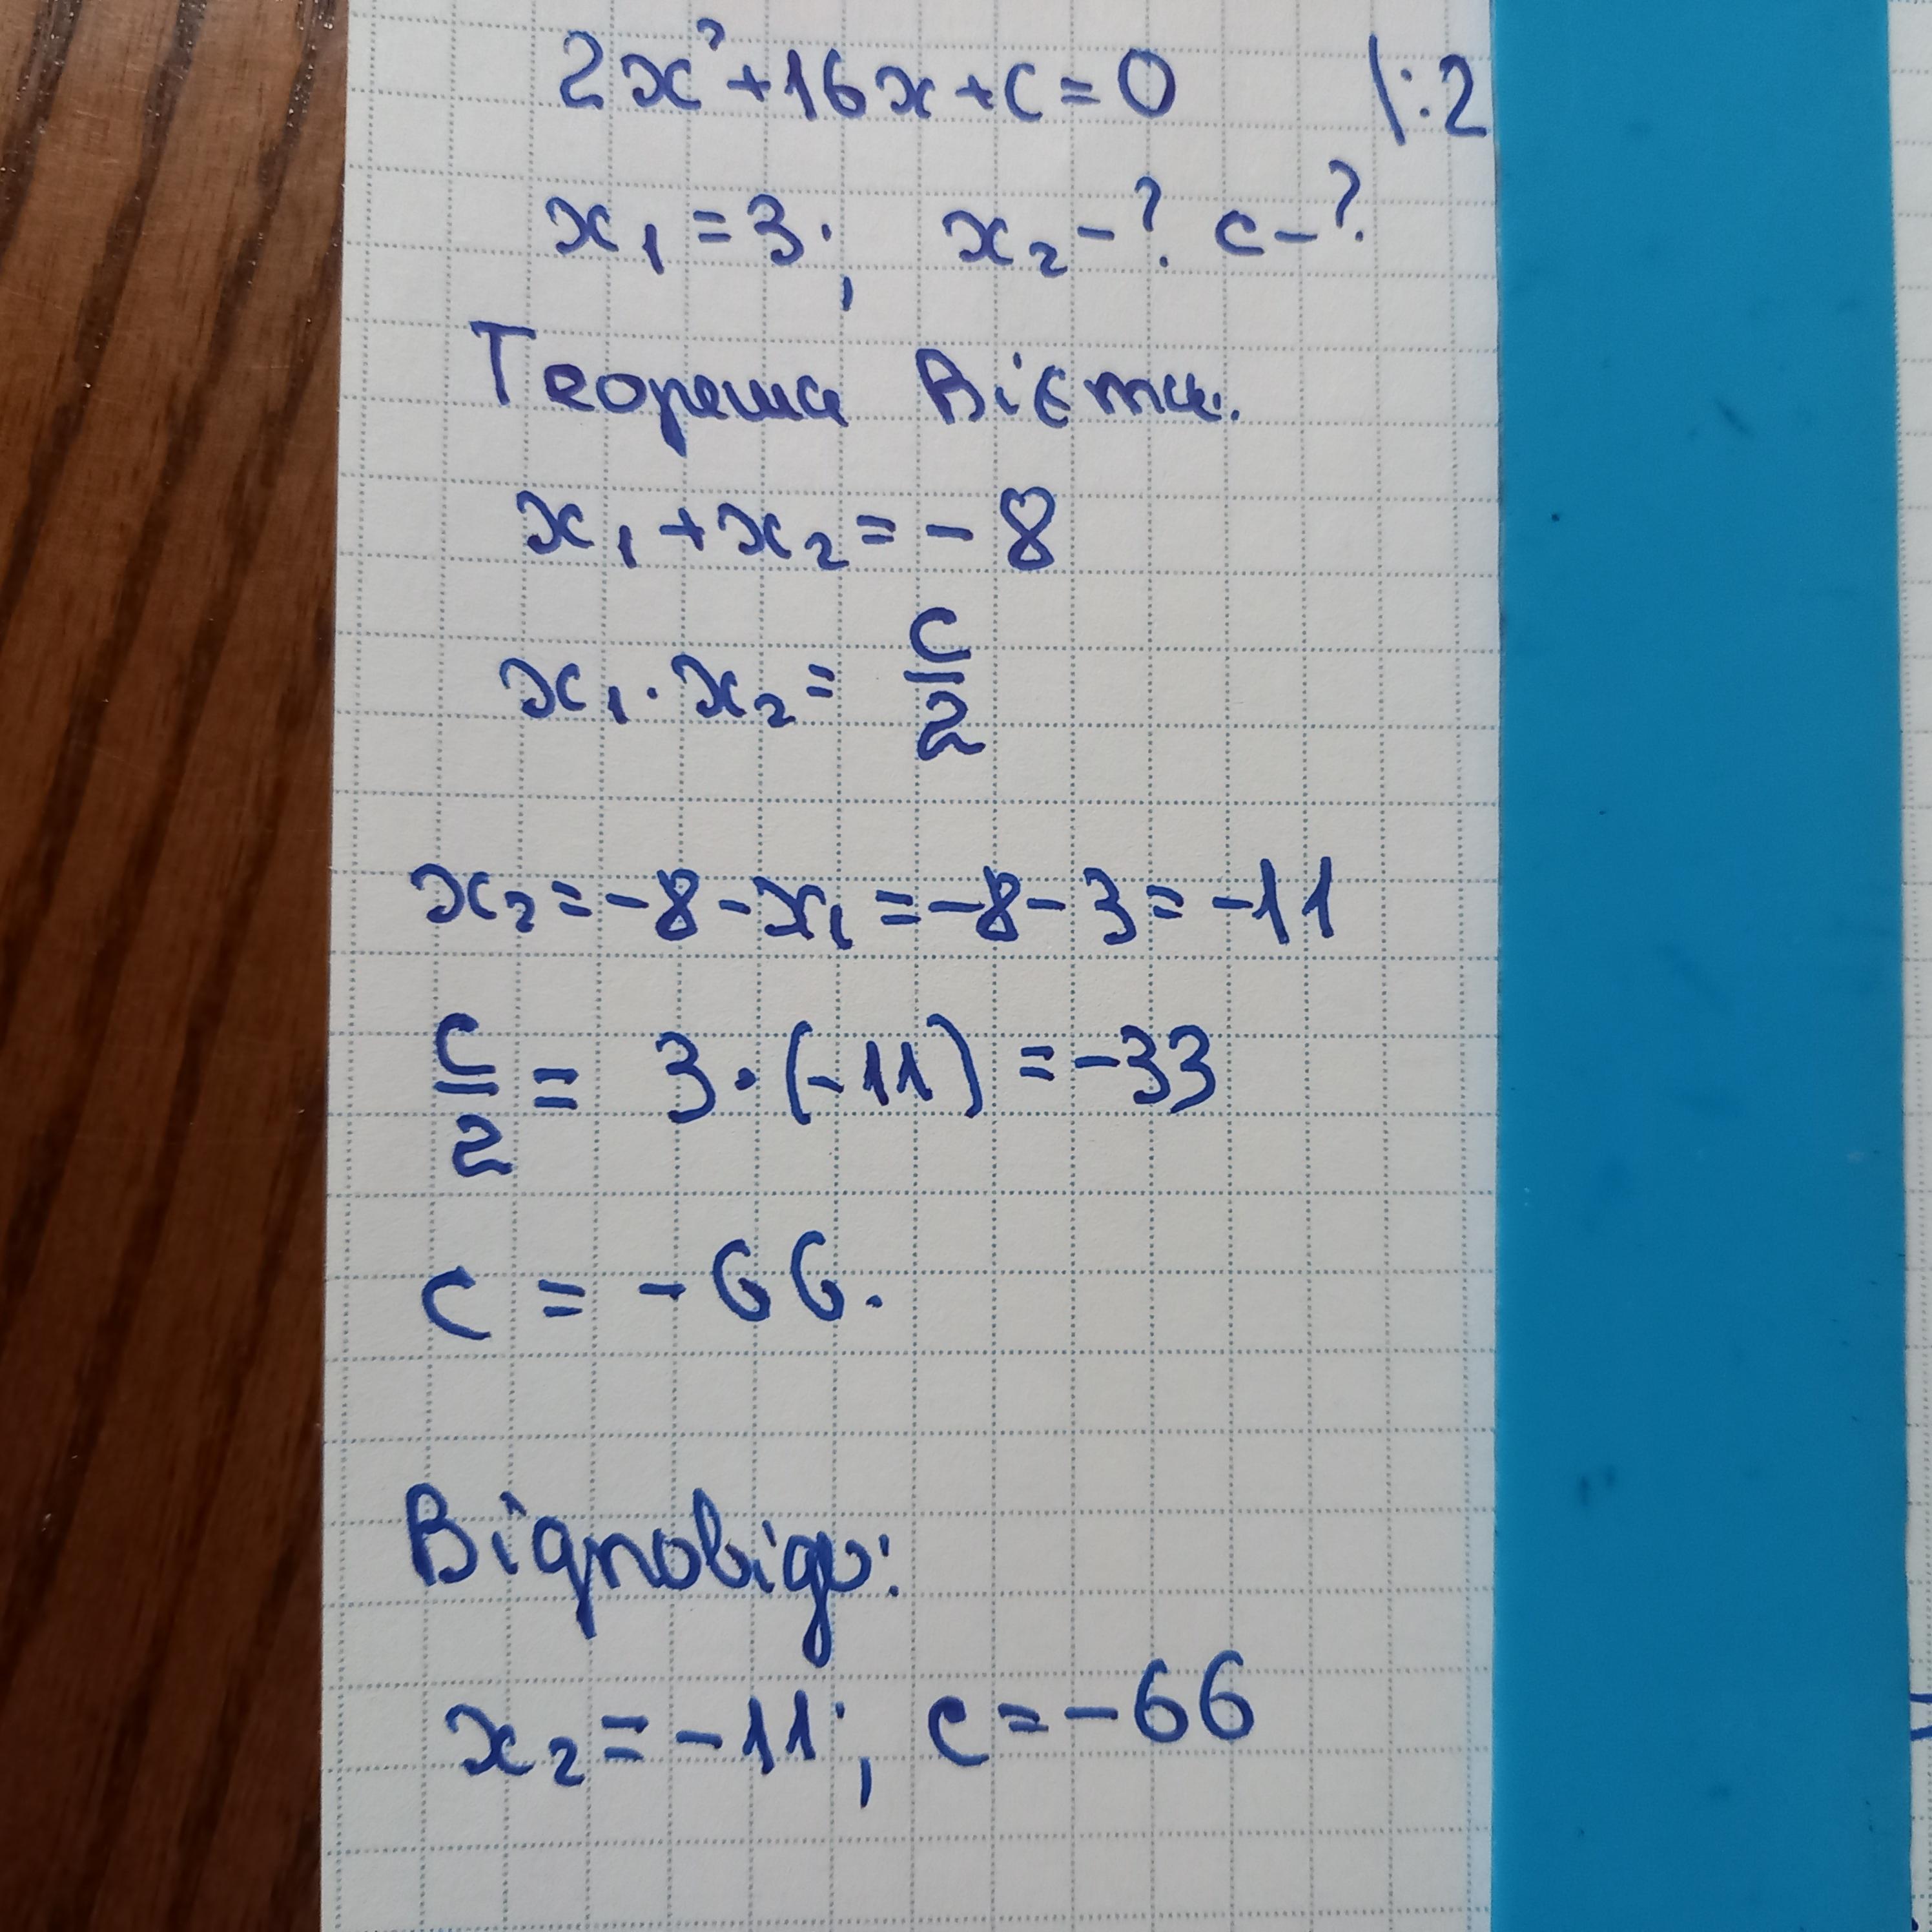 2x²+16x+c=0 |:2
x₁=3; x₂-? c-?
Теорема Вієта.
x₁+x₂=-8
x₁·x₂=c/2
x₂=-8-x₁=-8-3=-11
c/2=3·(-11)=-33
c=-66.
Відповідь:
x₂=-11; c=-66